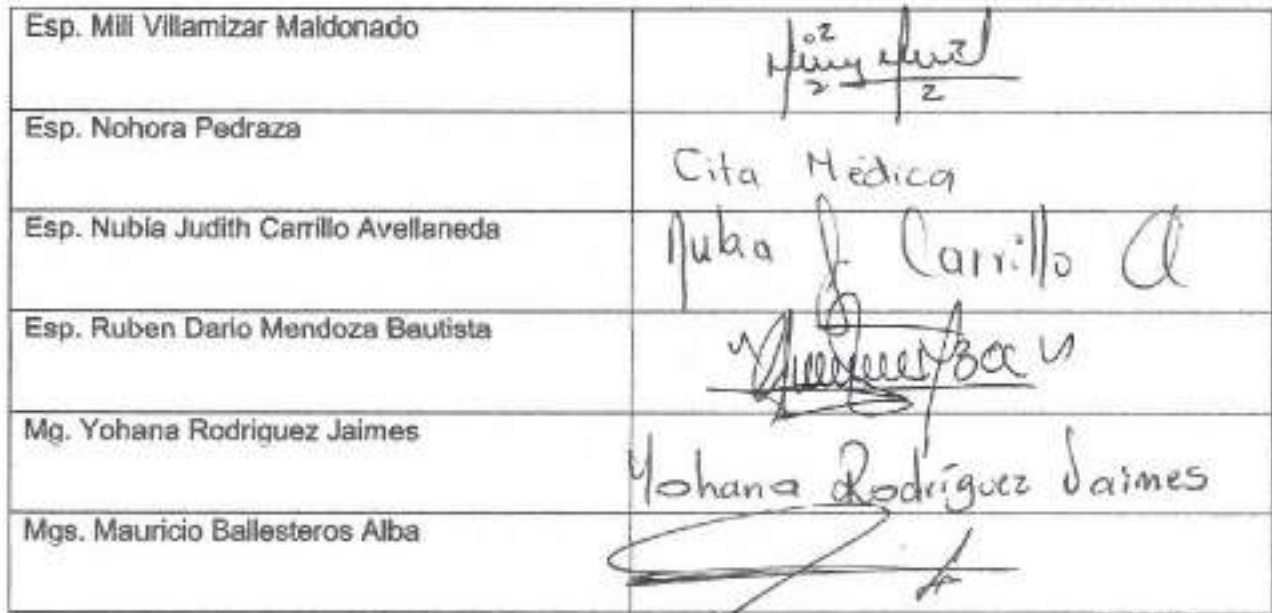 Esp. Mili Villamizar Maldonado
Esp. Nohora Pedraza
Cita Médica
Esp. Nubia Judith Carrillo Avellaneda
Nubia J Carrillo A
Esp. Ruben Dario Mendoza Bautista
Mg. Yohana Rodriguez Jaimes
Yohana Rodríguez Jaimes
Mgs. Mauricio Ballesteros Alba